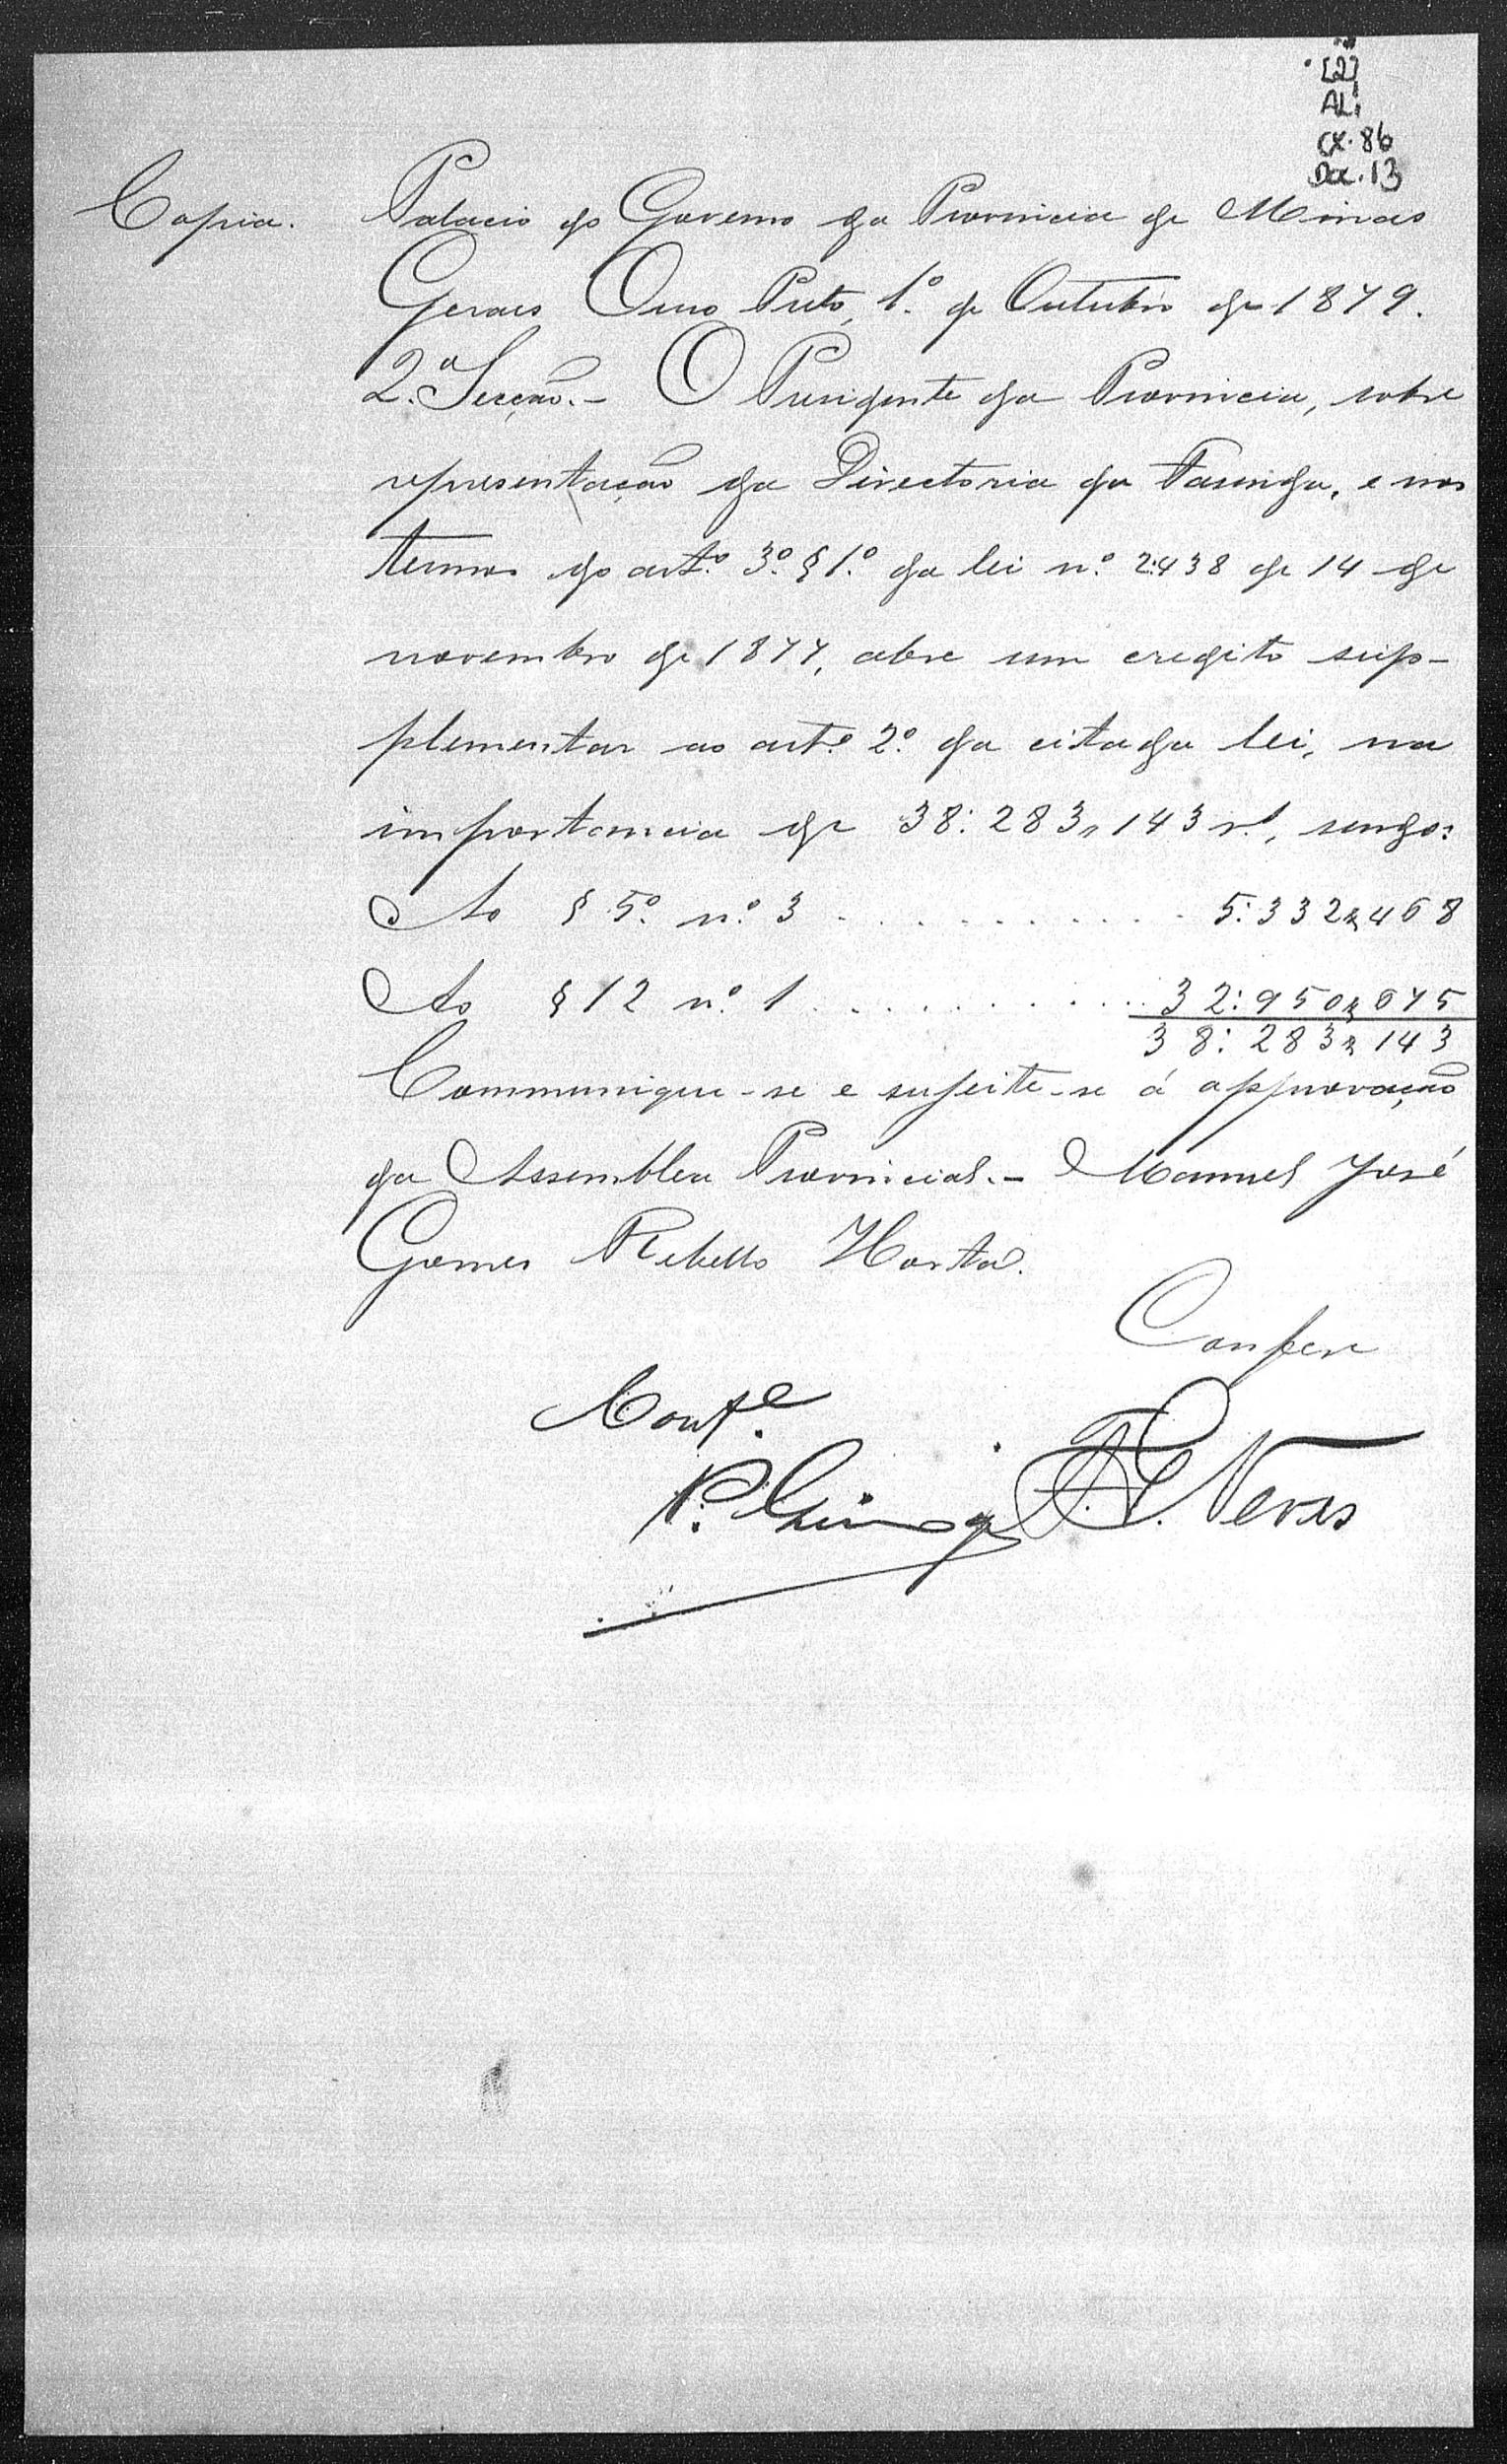 [2]
AL
CX. 86
Doc. 13
Copia. Palacio do Governo da Provincia de Minas
Geraes Ouro Preto, 1.º de Outubro de 1879.
2.ª Secção.- O Presidente da Provincia, sobre
representação da Directoria da Fasenda, e nos
termos do art.º 3.º § 1.º da lei n.º 2:438 de 14 de
novembro de 1877, abre um credito sup-
plementar ao art.º 2.º da citada lei, na
importancia de 38:283$143 r.s, sendo:
Ao § 5.º n.º 3 . . . . . . . . . . . 5:332$468
Ao § 12 n.º 1 . . . . . . . . . . 32:950$675
38:283$143
Communique-se e sujeite-se á approvação
da Assemblea Provincial.- Manuel José
Gomes Rebello Horta.
Confere
Conf.e
F. P. Neves